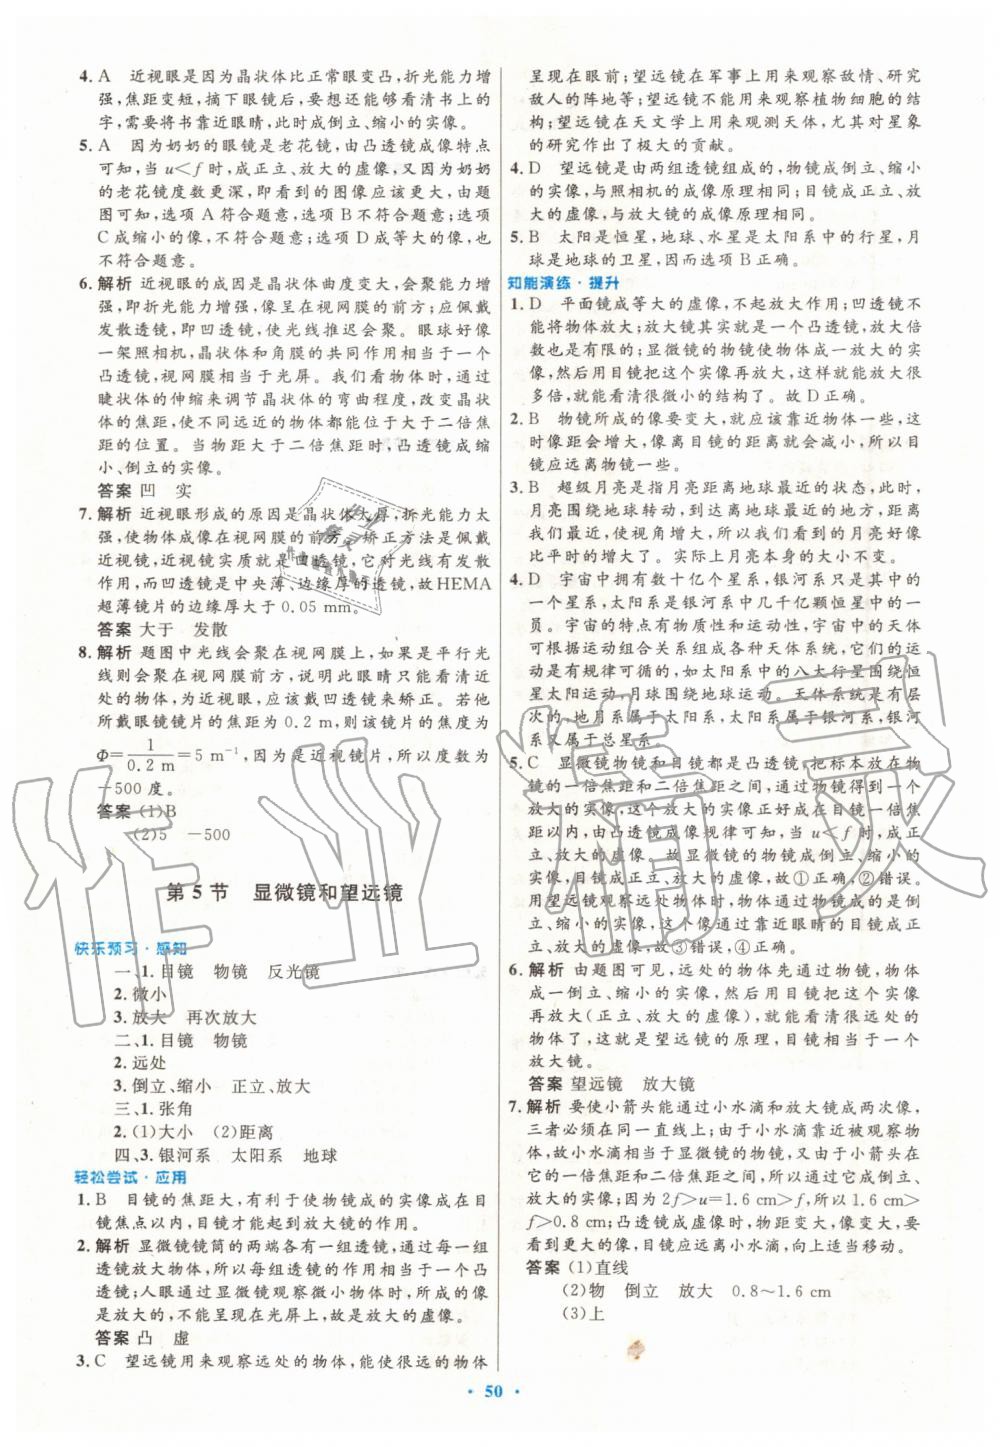 4. A　近视眼是因为晶状体比正常眼变凸,折光能力增
强,焦距变短,摘下眼镜后,要想能够看清书上的
字,需要将书靠近眼睛,此时成倒立、缩小的实像。
5. A　因为奶奶的眼镜是老花镜,由凸透镜成像特点
可知,当u<f时,成正立、放大的虚像,又因为奶奶
的老花镜度数更深,即看到的图像应该更大,由题
图可知,选项A符合题意,选项B不符合题意;选项
C成缩小的像,不符合题意;选项D成等大的像,也
不符合题意。
6. 解析　近视眼的成因是晶状体曲度变大,会聚能力增
强,即折光能力增强,像呈在视网膜的前方;应佩戴
发散透镜,即凹透镜,使光线推迟会聚。眼球好像
一架照相机,晶状体和角膜的共同作用相当于一个
凸透镜,视网膜相当于光屏。我们看物体时,通过
睫状体的伸缩来调节晶状体的弯曲程度,改变晶状
体的焦距,使不同远近的物体都位于大于二倍焦距
的位置。当物距大于二倍焦距时,凸透镜成缩
小、倒立的实像。
答案　凹　实
7. 解析　近视眼形成的原因是晶状体太厚,折光能力太
强,使物体成像在视网膜的前方,矫正方法是佩戴
近视镜,近视镜就是凹透镜,它对光线有发散
作用,而凹透镜是中央薄、边缘厚的透镜,故HEMA
超薄镜片的边缘厚大于0.05 mm。
答案　大于　发散
8. 解析　题图中光线会聚在视网膜上,如果是平行光
线则会聚在视网膜前方,说明此眼睛只能看清近
处的物体,为近视眼,应该戴凹透镜来矫正。若他
所戴眼镜镜片的焦距为0.2 m,则该镜片的焦度为
Φ=1/0.2 m=5 m⁻¹,因为是近视镜片,所以度数为
−500度。
答案　(1)B
(2)5　−500
第5节　显微镜和望远镜
快乐预习·感知
一、1. 目镜　物镜　反光镜
2. 微小
3. 放大　再次放大
二、1. 目镜　物镜
2. 远处
3. 倒立、缩小　正立、放大
三、1. 张角
2. (1)大小　(2)距离
四、3. 银河系　太阳系　地球
轻松尝试·应用
1. B　目镜的焦距大,有利于使物镜成的实像成在目
镜焦点以内,目镜才能起到放大镜的作用。
2. 解析　显微镜镜筒的两端各有一组透镜,通过每一组
透镜放大物体,所以每组透镜的作用相当于一个凸
透镜;人眼通过显微镜观察微小物体时,所成的像
是放大的,不能呈现在光屏上,为放大的虚像。
答案　凸　虚
3. C　望远镜用来观察远处的物体,能使很远的物体
呈现在眼前;望远镜在军事上用来观察敌情、研究
敌人的阵地等;望远镜不能用来观察植物细胞的结
构;望远镜在天文学上用来观测天体,尤其对星象
的研究作出了极大的贡献。
4. D　望远镜是由两组透镜组成的,物镜成倒立、缩小
的实像,与照相机的成像原理相同;目镜成正立、放
大的虚像,与放大镜的成像原理相同。
5. B　太阳是恒星,地球、水星是太阳系中的行星,月
球是地球的卫星,因而选项B正确。
知能演练·提升
1. D　平面镜成等大的虚像,不起放大作用;凹透镜不
能将物体放大;放大镜其实就是一个凸透镜,放大倍
数也是有限的;显微镜的物镜使物体成一放大的实
像,然后用目镜把这个实像再放大,这样就能放大很
多倍,就能看清很微小的结构了。故D正确。
2. B　物镜所成的像要变大,就应该靠近物体一些,这
时像距会增大,像离目镜的距离就会减小,所以目
镜应远离物镜一些。
3. B　超级月亮是指月亮距离地球最近的状态,此时,
月亮围绕地球转动,到达最近的地方,距离
我们最近,使视角增大,所以我们看到的月亮好像
比平时的增大了。实际上月亮本身的大小不变。
4. D　宇宙中拥有数十亿个星系,银河系只是其中的
一个星系,太阳系是银河系中几千亿颗恒星中的一
员。宇宙的特点有物质性和运动性,宇宙中的天体
可根据运动组合关系组成各种天体系统,它们的运
动是有规律可循的,如太阳系中的八大行星围绕恒
星太阳运动,月球围绕地球运动。天体系统是有层
次的,地月系属于太阳系,太阳系属于银河系,银河
系又属于总星系。
5. C　显微镜物镜和目镜都是凸透镜,把标本放在物
镜的一倍焦距和二倍焦距之间,通过物镜得到一个
放大的实像,这个放大的实像正好成在目镜一倍焦
距以内,由凸透镜成像规律可知,当u<f时,成正
立、放大的虚像,故①正确,②错误。
用望远镜观察远处物体时,物体通过物镜成的是倒
立、缩小的实像,这个像通过靠近眼睛的目镜成正
立、放大的虚像,故③错误,④正确。
6. 解析　由题图可见,远处的物体先通过物镜,物体
成一倒立、缩小的实像,然后用目镜把这个实像
再放大(正立、放大的虚像),就能看清很远处的
物体了,这就是望远镜的原理,目镜相当于一个
放大镜。
答案　望远镜　放大镜
7. 解析　要使小箭头能通过小水滴和放大镜成两次像,
三者必须在同一直线上;由于小水滴靠近被观察物
体,故小水滴相当于显微镜的物镜,又由于小箭头在
它的一倍焦距和二倍焦距之间,所以它成倒立、放
大的实像;因为2f>u=1.6 cm>f,所以1.6 cm>
f>0.8 cm;凸透镜成虚像时,物距变大,像变大,要
看到更大的像,目镜应远离小水滴,即上适当移动。
答案　(1)直线
(2)物　倒立　放大　0.8~1.6 cm
(3)上
· 50 ·
作业精灵